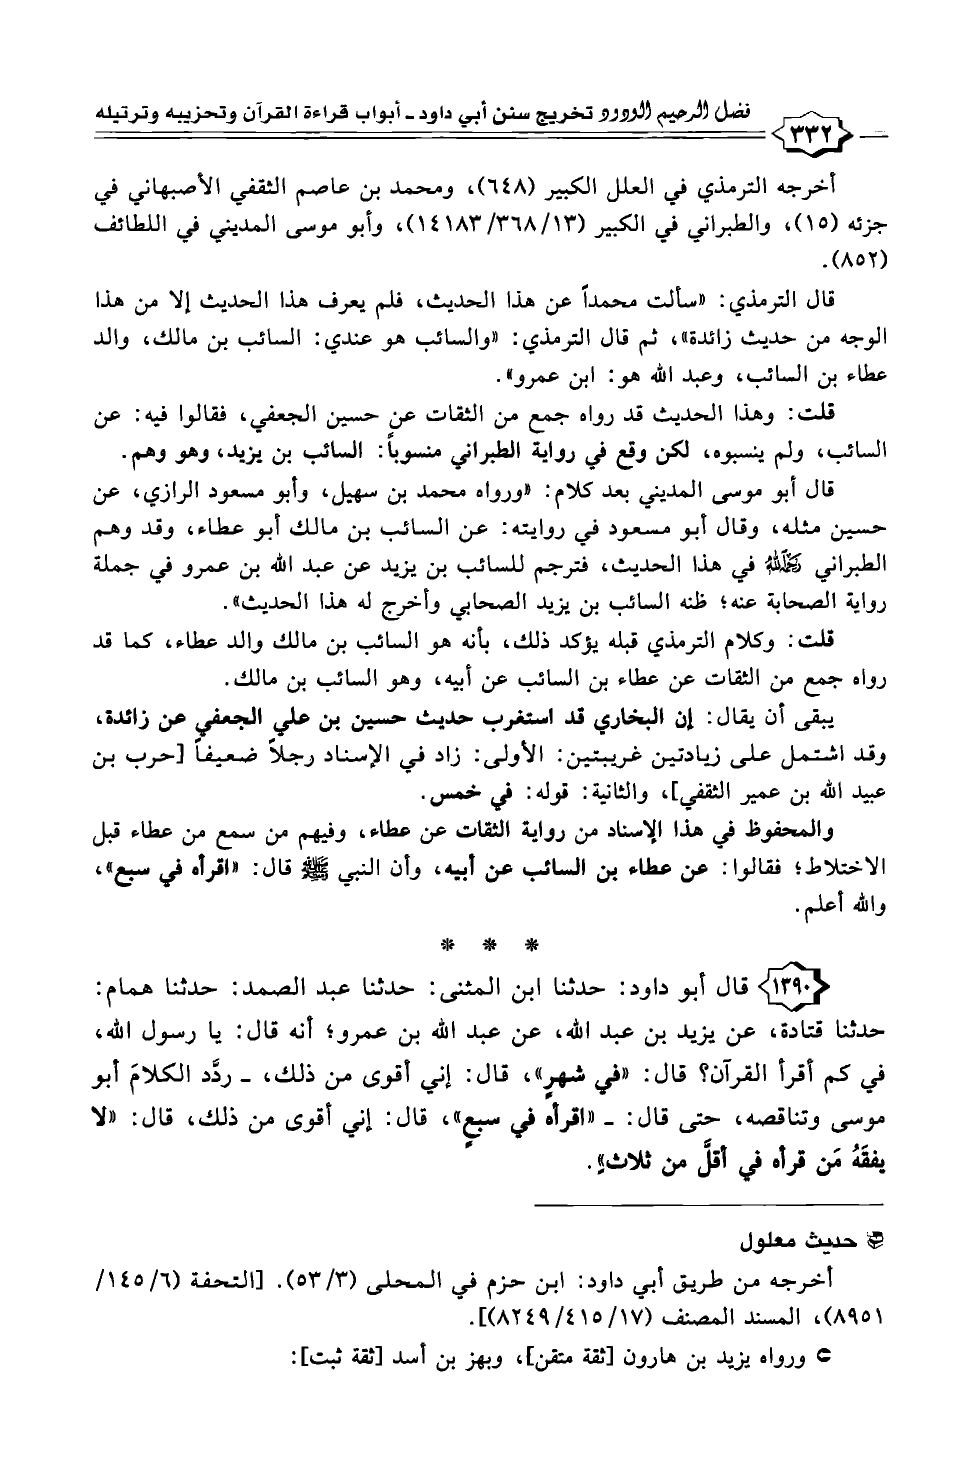 ٣٣٢ فضل الرحيم الودود تخريج سنن أبي داود ـ أبواب قراءة القرآن وتحزيبه وترتيله
أخرجه الترمذي في العلل الكبير (٦٤٨)، ومحمد بن عاصم الثقفي الأصبهاني في
جزئه (١٥)، والطبراني في الكبير (١٣/ ٣٦٨/ ١٤١٨٣)، وأبو موسى المديني في اللطائف
(٨٥٢).
قال الترمذي: «سألت محمداً عن هذا الحديث، فلم يعرف هذا الحديث إلا من هذا
الوجه من حديث زائدة»، ثم قال الترمذي: «والسائب هو عندي: السائب بن مالك، والد
عطاء بن السائب، وعبد الله هو: ابن عمرو».
قلت: وهذا الحديث قد رواه جمع من الثقات عن حسين الجعفي، فقالوا فيه: عن
السائب، ولم ينسبوه، لكن وقع في رواية الطبراني منسوباً: السائب بن يزيد، وهو وهم.
قال أبو موسى المديني بعد كلام: «ورواه محمد بن سهيل، وأبو مسعود الرازي، عن
حسين مثله، وقال أبو مسعود في روايته: عن السائب بن مالك أبو عطاء، وقد وهم
الطبراني رحمه الله في هذا الحديث، فترجم للسائب بن يزيد عن عبد الله بن عمرو في جملة
رواية الصحابة عنه؛ ظنه السائب بن يزيد الصحابي وأخرج له هذا الحديث».
قلت: وكلام الترمذي قبله يؤكد ذلك، بأنه هو السائب بن مالك والد عطاء، كما قد
رواه جمع من الثقات عن عطاء بن السائب عن أبيه، وهو السائب بن مالك.
يبقى أن يقال: إن البخاري قد استغرب حديث حسين بن علي الجعفي عن زائدة،
وقد اشتمل على زيادتين غريبتين: الأولى: زاد في الإسناد رجلاً ضعيفاً [حرب بن
عبيد الله بن عمير الثقفي]، والثانية: قوله: في خمس.
والمحفوظ في هذا الإسناد من رواية الثقات عن عطاء، وفيهم من سمع من عطاء قبل
الاختلاط؛ فقالوا: عن عطاء بن السائب عن أبيه، وأن النبي ﷺ قال: «اقرأه في سبع»،
والله أعلم.
* * *
١٣٩٠ قال أبو داود: حدثنا ابن المثنى: حدثنا عبد الصمد: حدثنا همام:
حدثنا قتادة، عن يزيد بن عبد الله، عن عبد الله بن عمرو؛ أنه قال: يا رسول الله،
في كم أقرأ القرآن؟ قال: «في شهرٍ»، قال: إني أقوى من ذلك، ـ ردَّد الكلامَ أبو
موسى وتناقصه، حتى قال: ـ «اقرأه في سبعٍ»، قال: إني أقوى من ذلك، قال: «لا
يفقَهُ مَن قرأه في أقلَّ من ثلاثٍ».
حديث معلول
أخرجه من طريق أبي داود: ابن حزم في المحلى (٣/ ٥٣). [التحفة (٦/ ١٤٥/
٨٩٥١)، المسند المصنف (١٧/ ٤١٥/ ٨٢٤٩)].
ورواه يزيد بن هارون [ثقة متقن]، وبهز بن أسد [ثقة ثبت]: